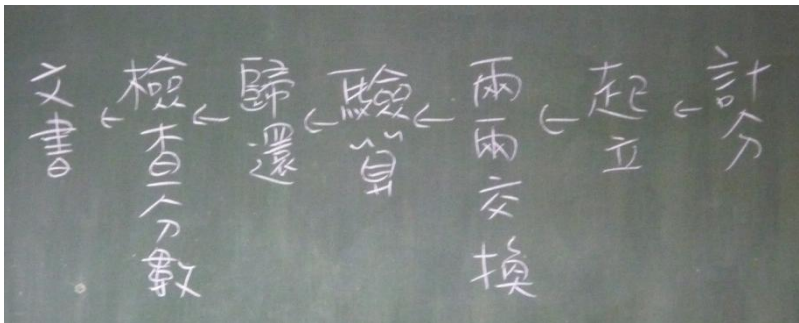 計分
←
起立
←
兩兩交換
←
驗算
←
歸還
←
檢查分數
←
文書